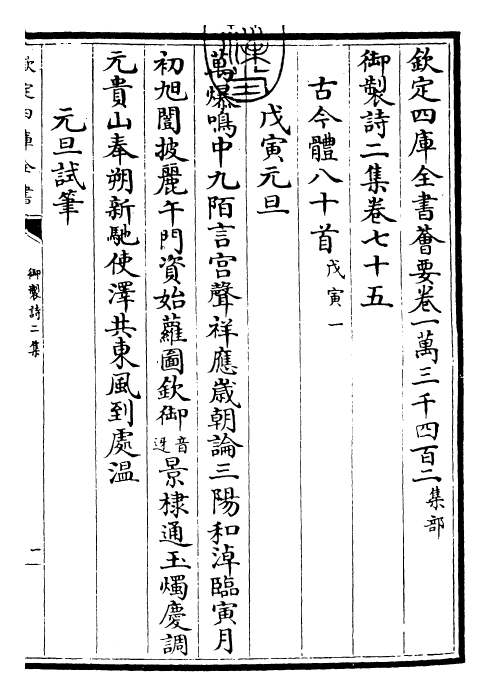 欽定四庫全書薈要卷一萬三千四百二集部
御製詩二集卷七十五
古今體八十首戊寅一
戊寅元旦
萬爆鳴中九陌言宫聲祥應嵗朝論三陽和淖臨寅月
初旭闓披麗午門資始蘿圖欽御音迓景棣通玉燭慶調
元貴山奉朔新馳使澤共東風到處温
元旦試筆
欽定四庫全書
御製詩二集
一